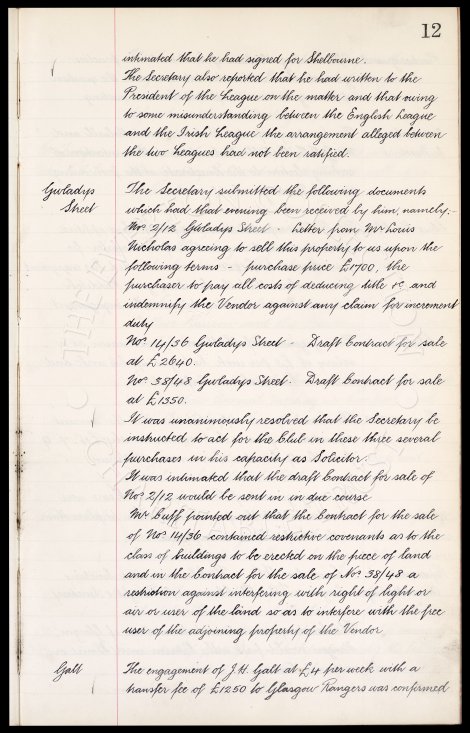 12
intimated that he had signed for Shelbourne.
The Secretary also reported that he had written to the
President of the League on the matter and that owing
to some misunderstanding between the English League
and the Irish League the arrangement alleged between
the two Leagues had not been ratified.
Gwladys
Street
The Secretary submitted the following documents
which had that evening been received by him, namely:-
Nos. 2/12 Gwladys Street - Letter from Mr Louis
Nicholas agreeing to sell this property to us upon the
following terms - purchase price £1700, the
purchaser to pay all costs of deducing title &c, and
indemnify the Vendor against any claim for increment
duty
Nos. 14/36 Gwladys Street - Draft Contract for sale
at £2640.
Nos. 38/48 Gwladys Street. Draft Contract for sale
at £1350.
It was unanimously resolved that the Secretary be
instructed to act for the Club in these three several
purchases in his capacity as Solicitor.
It was intimated that the draft Contract for sale of
Nos. 2/12 would be sent in in due course
Mr Cuff pointed out that the Contract for the sale
of Nos. 14/36 contained restrictive covenants as to the
class of buildings to be erected on the piece of land
and in the Contract for the sale of Nos. 38/48 a
restriction against interfering with right of light or
air or user of the land so as to interfere with the free
user of the adjoining property of the Vendor.
Galt
The engagement of J.H. Galt at £4 per week with a
transfer fee of £1250 to Glasgow Rangers was confirmed